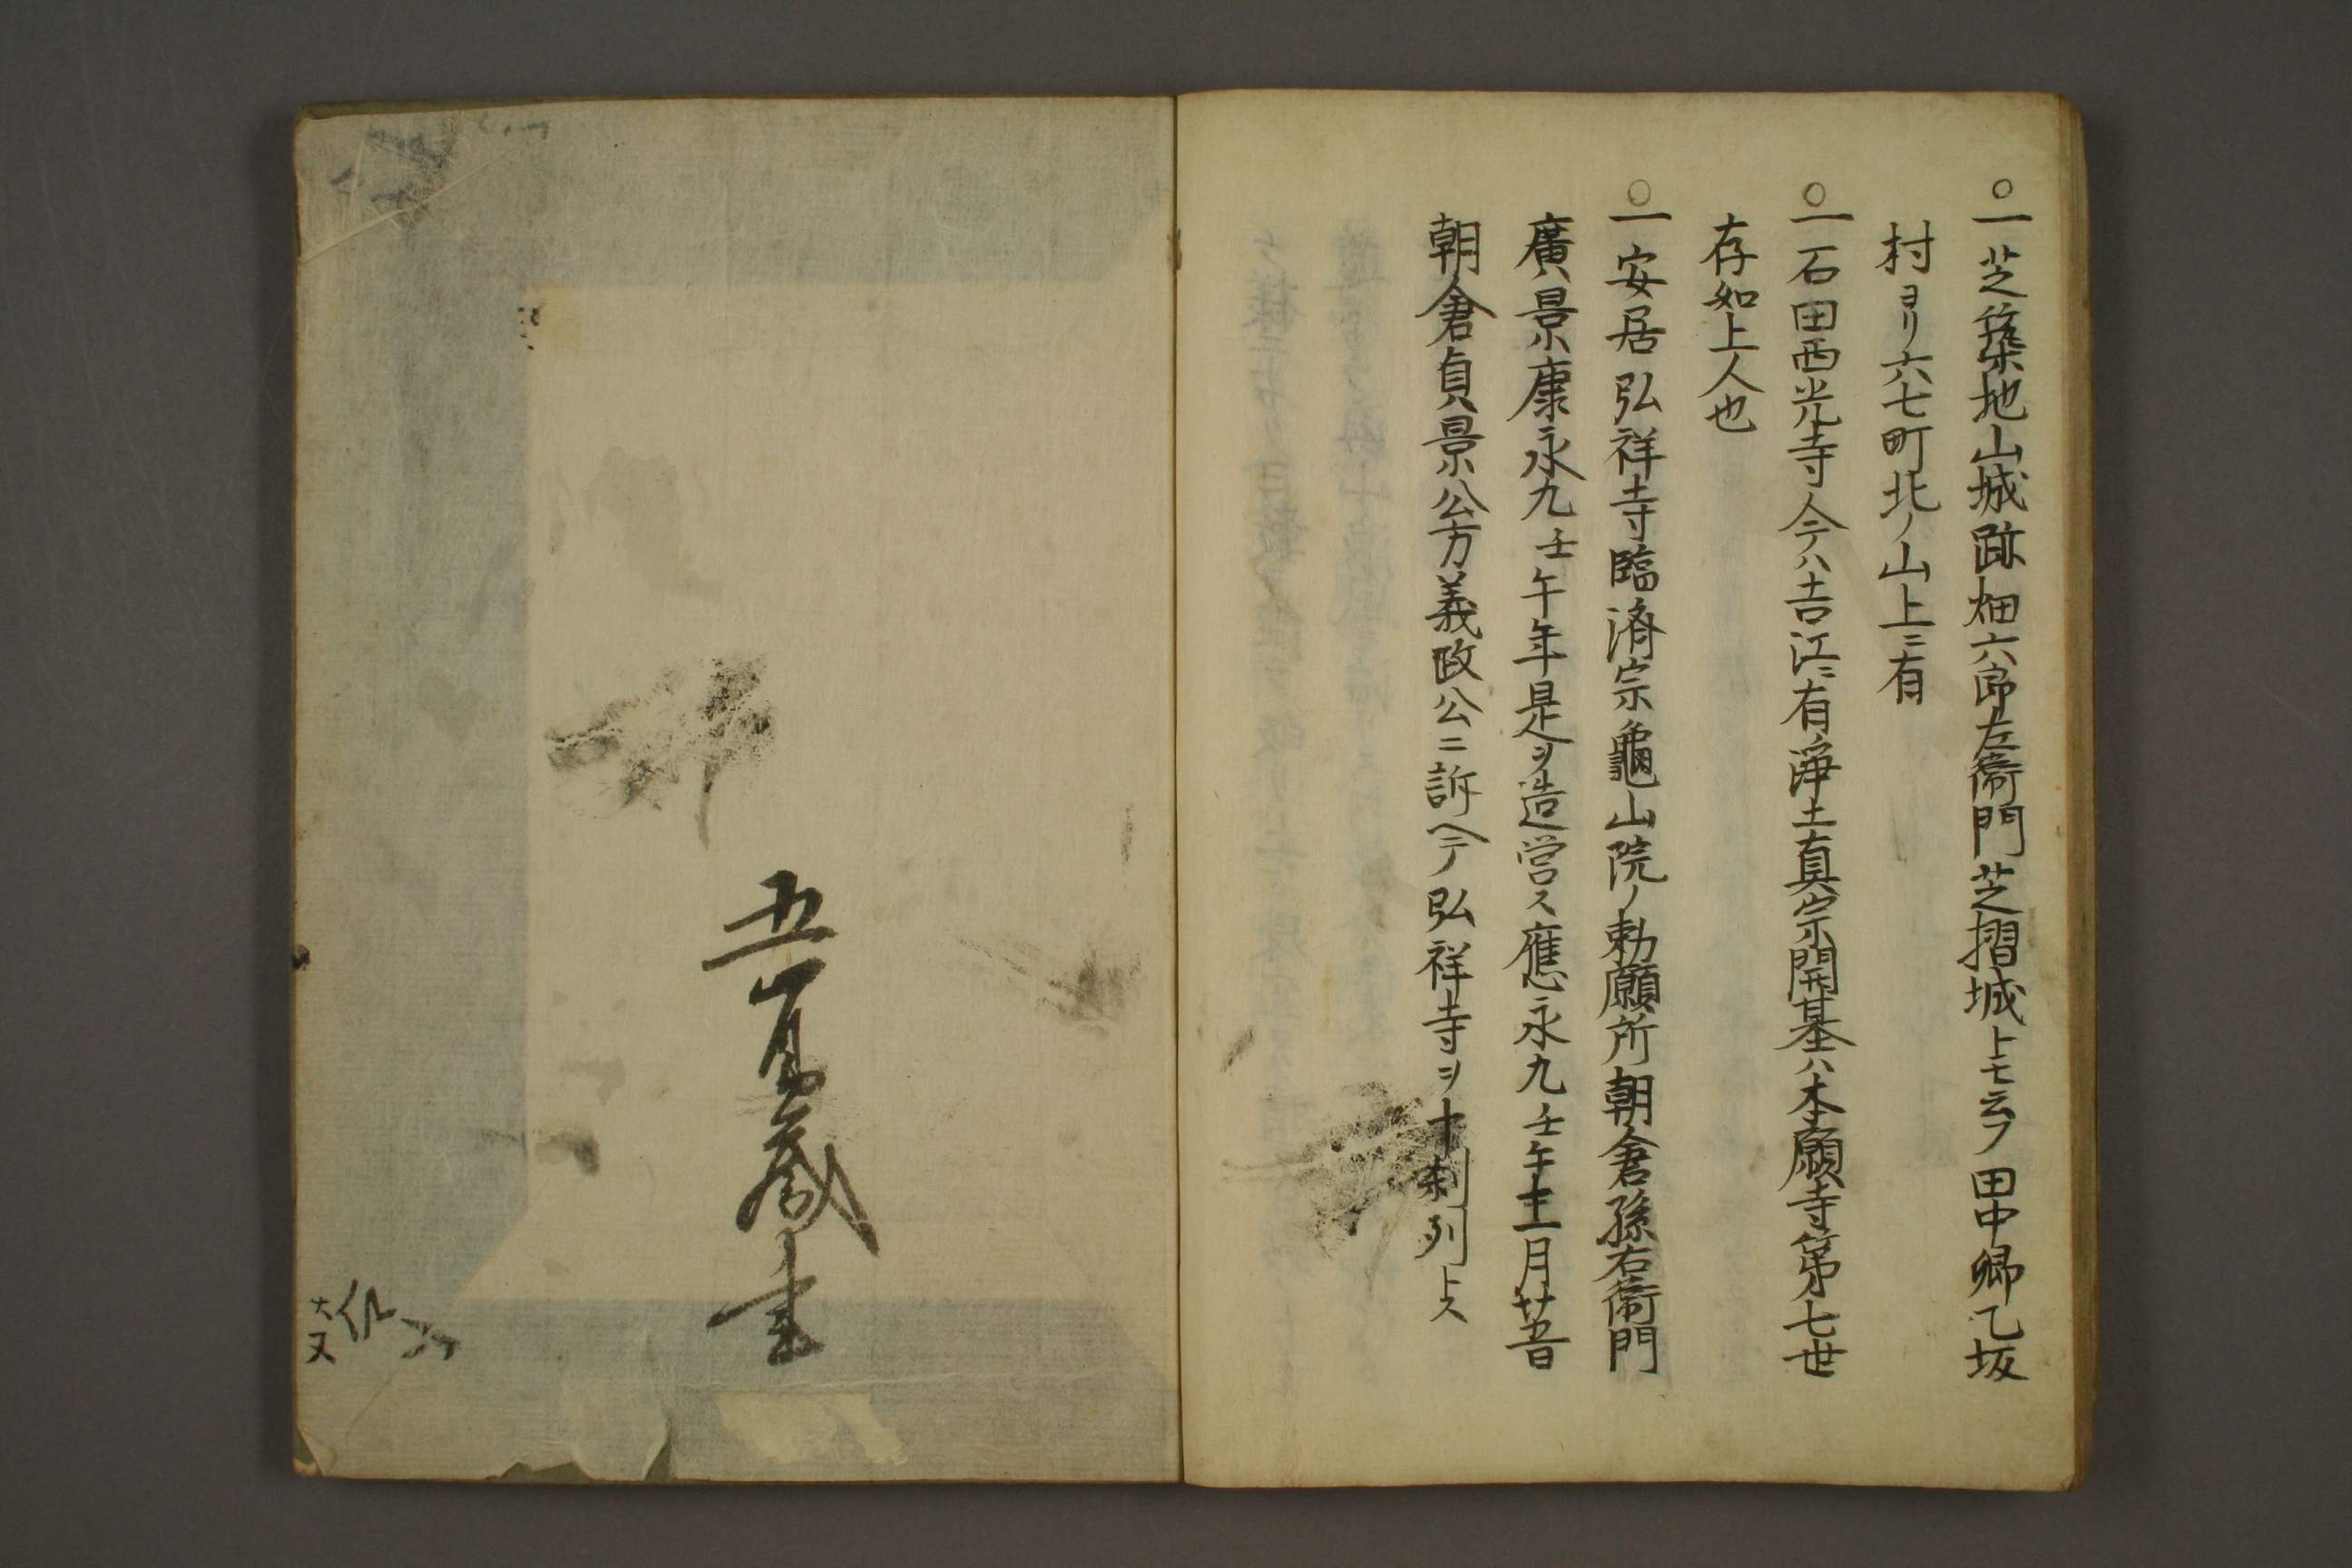 ○一芝築地山城跡畑六郎左衛門芝摺城トモ云フ田中郷乙坂
村ヨリ六七町北ノ山上ニ有
○一石田西光寺今テハ吉江ニ有浄土真宗開基ハ本願寺第七世
存如上人也
○一安居弘祥寺臨済宗龜山院ノ勅願所朝倉孫右衛門
廣景康永九壬午年是ヲ造営ス應永九壬午十一月廿五日
朝倉貞景公方義政公ニ訴ヘテ弘祥寺ヲ十刹列トス